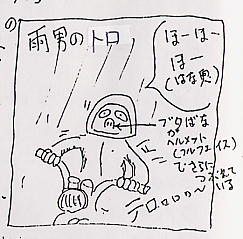 雨男のトロ
ほーほー
ほー
(はな息)
ブタばな
が
ヘルメット
(フルフェイス)
でさらに
つぶれて
いる
ロロロロ〜
の